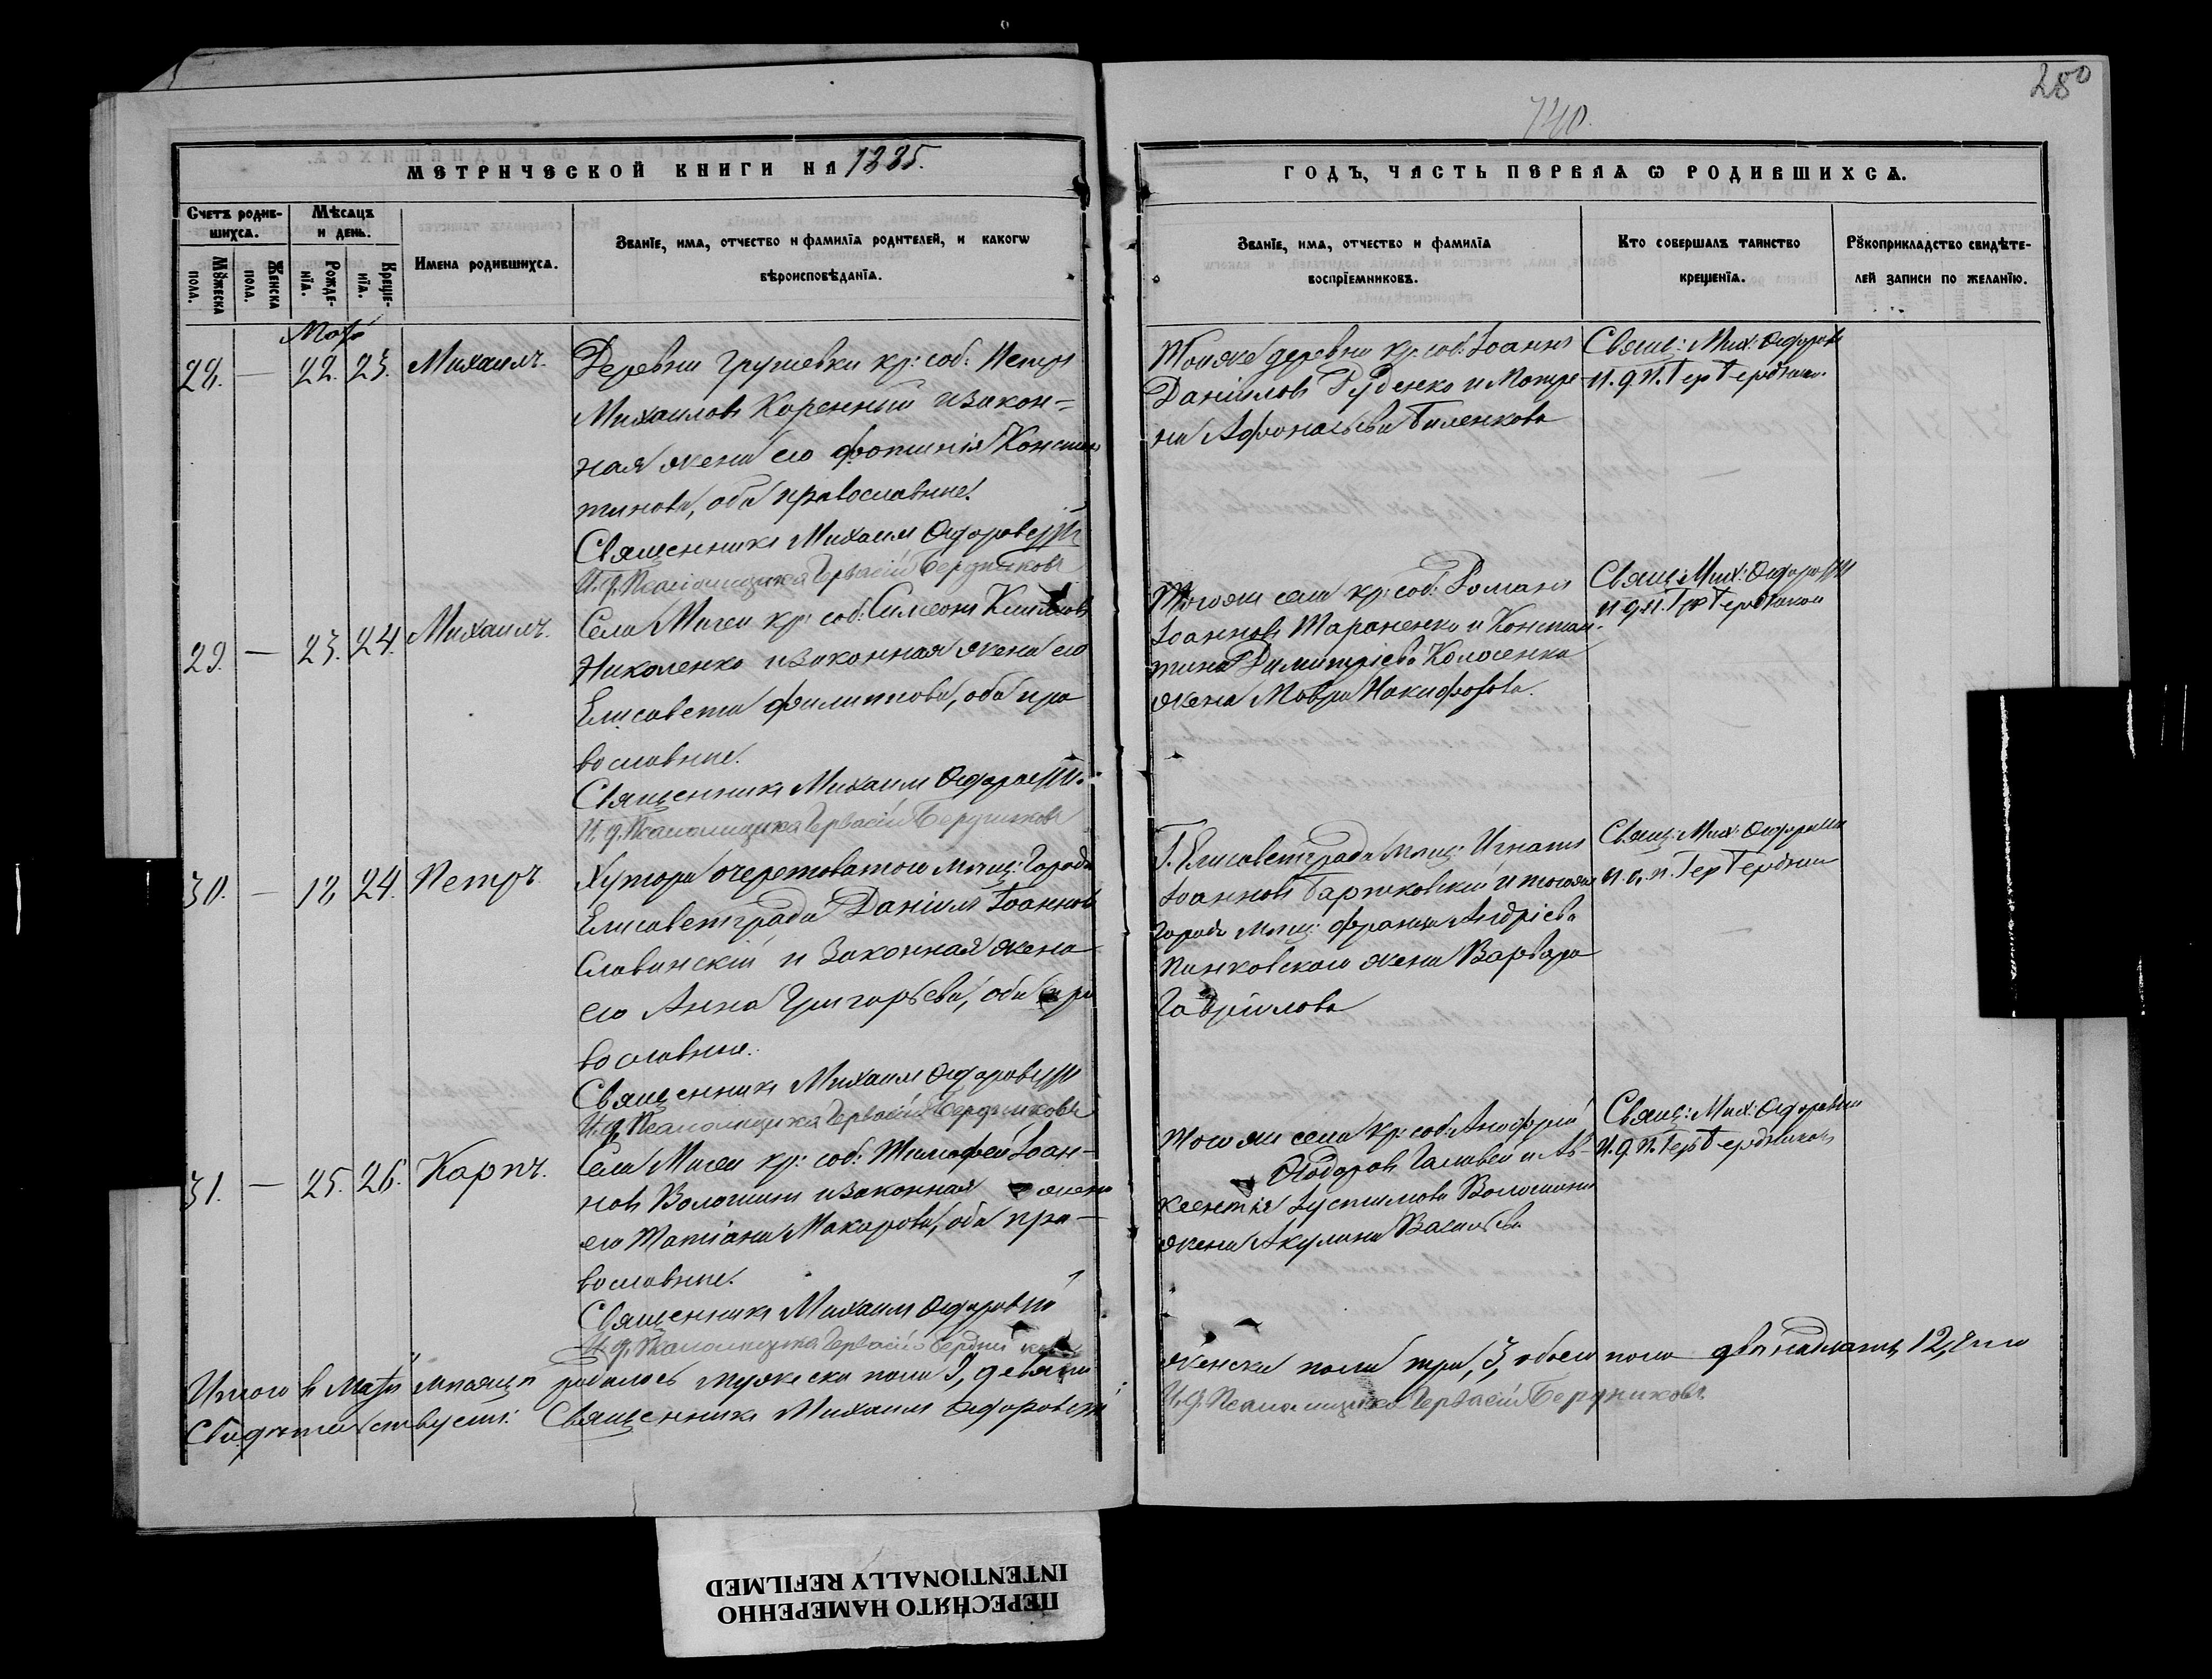 280
740.
МЕТРИЧЕСКОЙ КНИГИ НА 1885.
ГОДЪ, ЧАСТЬ ПЕРВАЯ Ѡ РОДИВШИХСѦ.
Счетъ родив-
шихсѧ.
Мѣсѧцъ
и день.
Мꙋжеска
пола.
Женска
пола.
Рожде-
нїѧ.
Креще-
нїѧ.
Имена родившихсѧ.
Званїе, имѧ, отчество и фамилїѧ родителей, и какогѡ
вѣроисповѣданїѧ.
Званїе, имѧ, отчество и фамилїѧ
воспрїемниковъ.
Кто совершалъ таинство
крещенїѧ.
Рꙋкоприкладство свидѣте-
лей записи по желанїю.
28. — 22. 23. Михаилъ.
Деревни Грушевки кр: соб: Петръ
Михаиловъ Коренный и закон=
ная жена его Фотинія Констан
тинова, оба православные.
Священникъ Михаил
И. д. Псаломщика Гервасій Бердниковъ
Тояже деревни кр: соб: Іоаннъ
Даніиловъ Руденко и Мотро
на Афонасьева Биленкова
Свящ: Мих:
и. д. п. Гер Бердников
29. — 23. 24. Михаилъ.
Села Мигеи кр: соб: Симеонъ
Николенко и законная жена его
Елисавета Филиппова, оба пра
вославные.
Священникъ Михаил
И. д. Псаломщика Гервасій Бердниковъ
Тогоже села кр: соб: Романъ
Іоанновъ Тараненко и Констан
тина Димитріева
жена Мавра Никифорова.
Свящ: Мих:
и. д. п. Гер Бердников
30. — 18. 24. Петръ.
Хутора Очеретоватого мѣщ: города
Елисаветграда Даніилъ Іоанновъ
Славинскій и законная жена
его Анна Григорьева, оба пра
вославные.
Священникъ Михаил
И. д. Псаломщика Гервасій Бердниковъ
Г. Елисаветграда мѣщ: Игнатъ
Іоанновъ и тогоже
города мѣщ: Франца Андріева
жена Варвара
Гавріилова
Свящ: Мих:
и. д. п. Гер Бердник
31. — 25. 26. Карпъ.
Села Мигеи кр: соб: Тимофей Іоан-
новъ Волошинъ и законная жена
его Татіана Макарова, оба пра-
вославные.
Священникъ Михаил
И. д. Псаломщика Гервасій Бердниковъ
Тогоже села кр: соб:
Ѳодоровъ и Ав-
ксентія Іустинова Волошина
жена Акулина Васильева
Свящ: Мих:
и. д. п. Гер Бердников
Итого в Маѣ мѣсяцѣ родилось мужеска пола 9, девять
женска пола три, 3, обоего пола двѣнадцать, 12, что
Свидѣтельствуетъ: Священникъ Михаил
И. д. Псаломщика Гервасій Бердниковъ.
ПЕРЕСНЯТО НАМЕРЕННО
INTENTIONALLY REFILMED